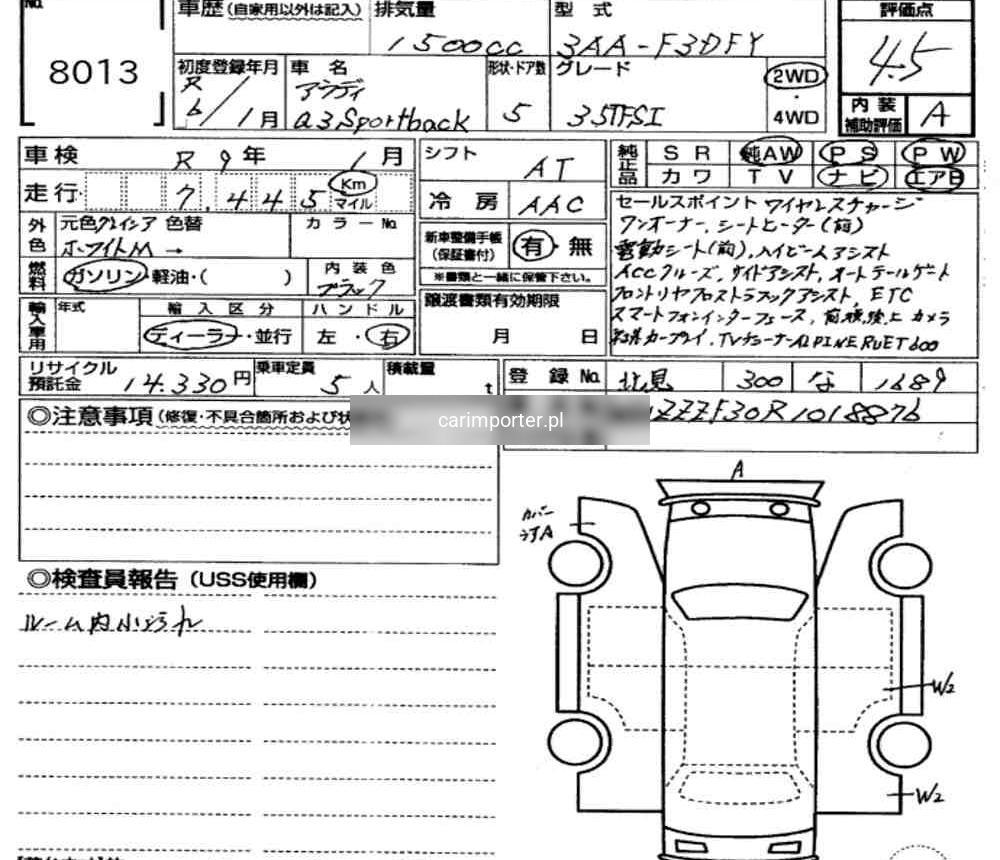 No.
8013
車歴(自家用以外は記入)
排気量
1500cc
型式
3AA-F3DFY
評価点
4.5
初度登録年月
R
6/1月
車名
アウディ
a3Sportback
形状・ドア数
5
グレード
35TFSI
2WD
・
4WD
内装
補助評価
A
車検
R 9年 1月
走行
7,445
Km
マイル
シフト
AT
冷房
AAC
純正品
SR 純AW PS PW
カワ TV ナビ エアB
外色
元色グレイシア 色替
ホワイトM →
カラーNo.
燃料
ガソリン・軽油・( )
内装色
ブラック
新車整備手帳
(保証書付)
有・無
※書類と一緒に保管下さい。
セールスポイント ワイヤレスチャージ
ワンオーナー、シートヒーター(前)
電動シート(前)、ハイビームアシスト
ACCクルーズ、サイドアシスト、オートテールゲート
フロントリヤクロストラフィックアシスト, ETC
スマートフォンインターフェース, カメラ
カープレイ, TVチューナー ALPINE
輸入車用
年式
輸入区分
ディーラー・並行
ハンドル
左・右
譲渡書類有効期限
月 日
リサイクル
預託金
14.330円
乗車定員
5人
積載量
t
登録No.
北見 300 な 1689
ZZZF30R1018876
carimporter.pl
◎注意事項(修復・不具合箇所および状
A
カバー
うすA
◎検査員報告(USS使用欄)
ルーム内小汚れ
W2
W2